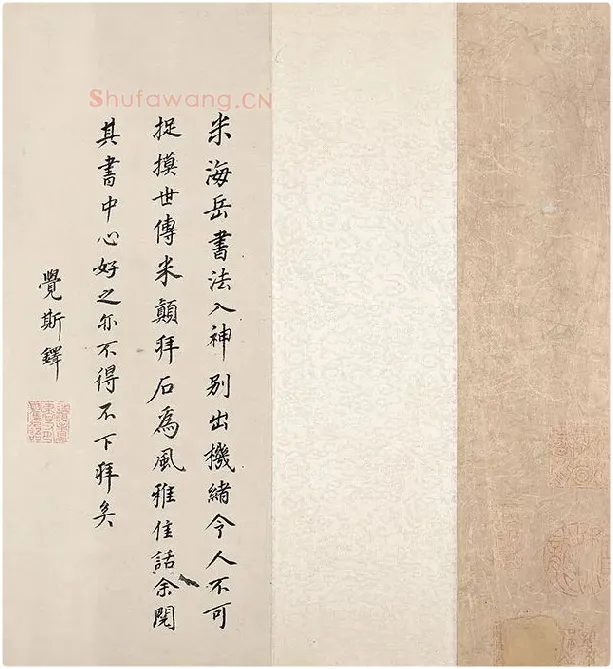 Shufawang.CN
米海岳書法入神別出機緒令人不可
捉摸世傳米顛拜石為風雅佳話余閱
其書中心好之亦不得不下拜矣
覺斯鐸